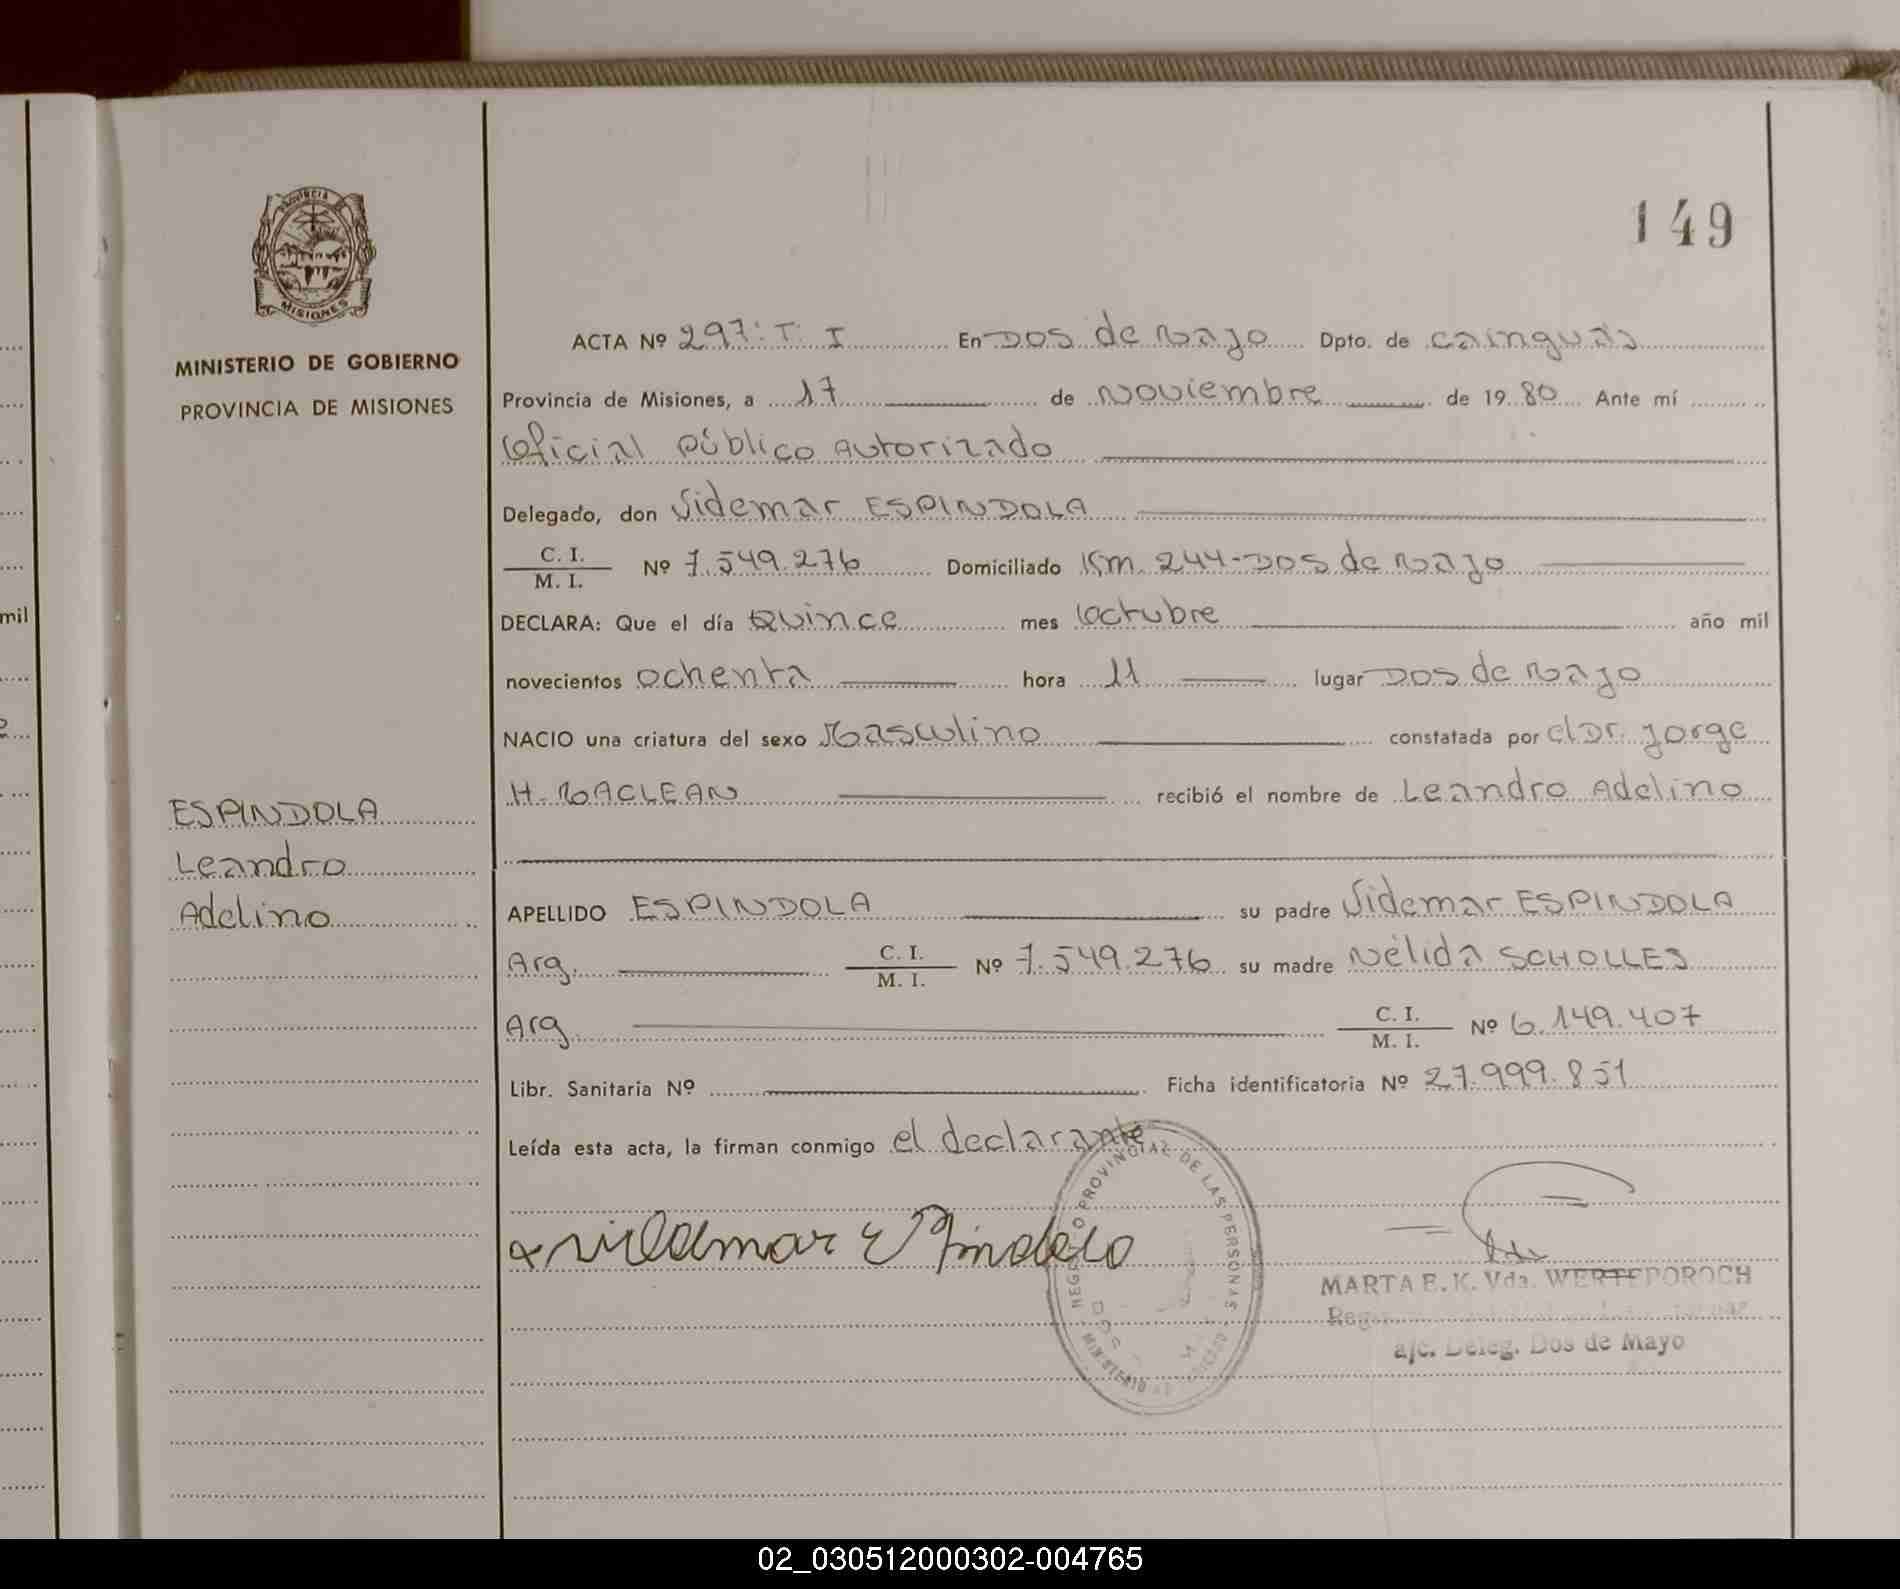 149
PROVINCIA
MISIONES
MINISTERIO DE GOBIERNO
PROVINCIA DE MISIONES
ACTA Nº 297: T: I En Dos de Mayo Dpto. de Cainguás
Provincia de Misiones, a 17 de Noviembre de 1980 Ante mí
Oficial Público Autorizado
Delegado, don Videmar ESPINDOLA
C. I.
M. I. Nº 7.549.276 Domiciliado Km. 244-Dos de Mayo
DECLARA: Que el día Quince mes Octubre año mil
novecientos ochenta hora 11 lugar Dos de Mayo
NACIO una criatura del sexo Masculino constatada por el Dr. Jorge
H. MACLEAN recibió el nombre de Leandro Adelino
APELLIDO ESPINDOLA su padre Videmar ESPINDOLA
Arg. C. I.
M. I. Nº 7.549.276 su madre Nélida SCHOLLES
Arg. C. I.
M. I. Nº 6.149.407
Libr. Sanitaria Nº Ficha identificatoria Nº 27.999.851
Leída esta acta, la firman conmigo el declarante
ESPINDOLA
Leandro
Adelino
PROVINCIAL DE LAS PERSONAS
MARTA E. K. Vda. WERTEPOROCH
a/c. Deleg. Dos de Mayo
mil
02_030512000302-004765